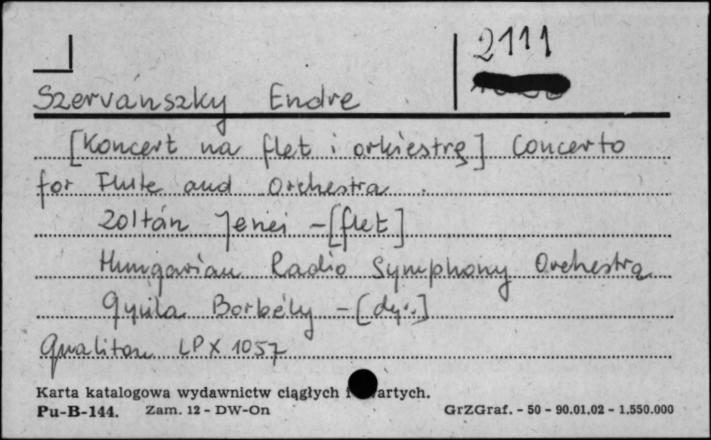 2111
Szervanszky Endre
[Koncert na flet i orkiestrę] Concerto
for Flute and Orchestra.
Zoltán Jenei - [flet]
Hungarian Radio Symphony Orchestra
Gyula Borbély - [dyr.]
Qualiton LPX 1057
Karta katalogowa wydawnictw ciągłych i wartych.
Pu-B-144. Zam. 12 - DW-On GrZGraf. - 50 - 90.01.02 - 1.550.000